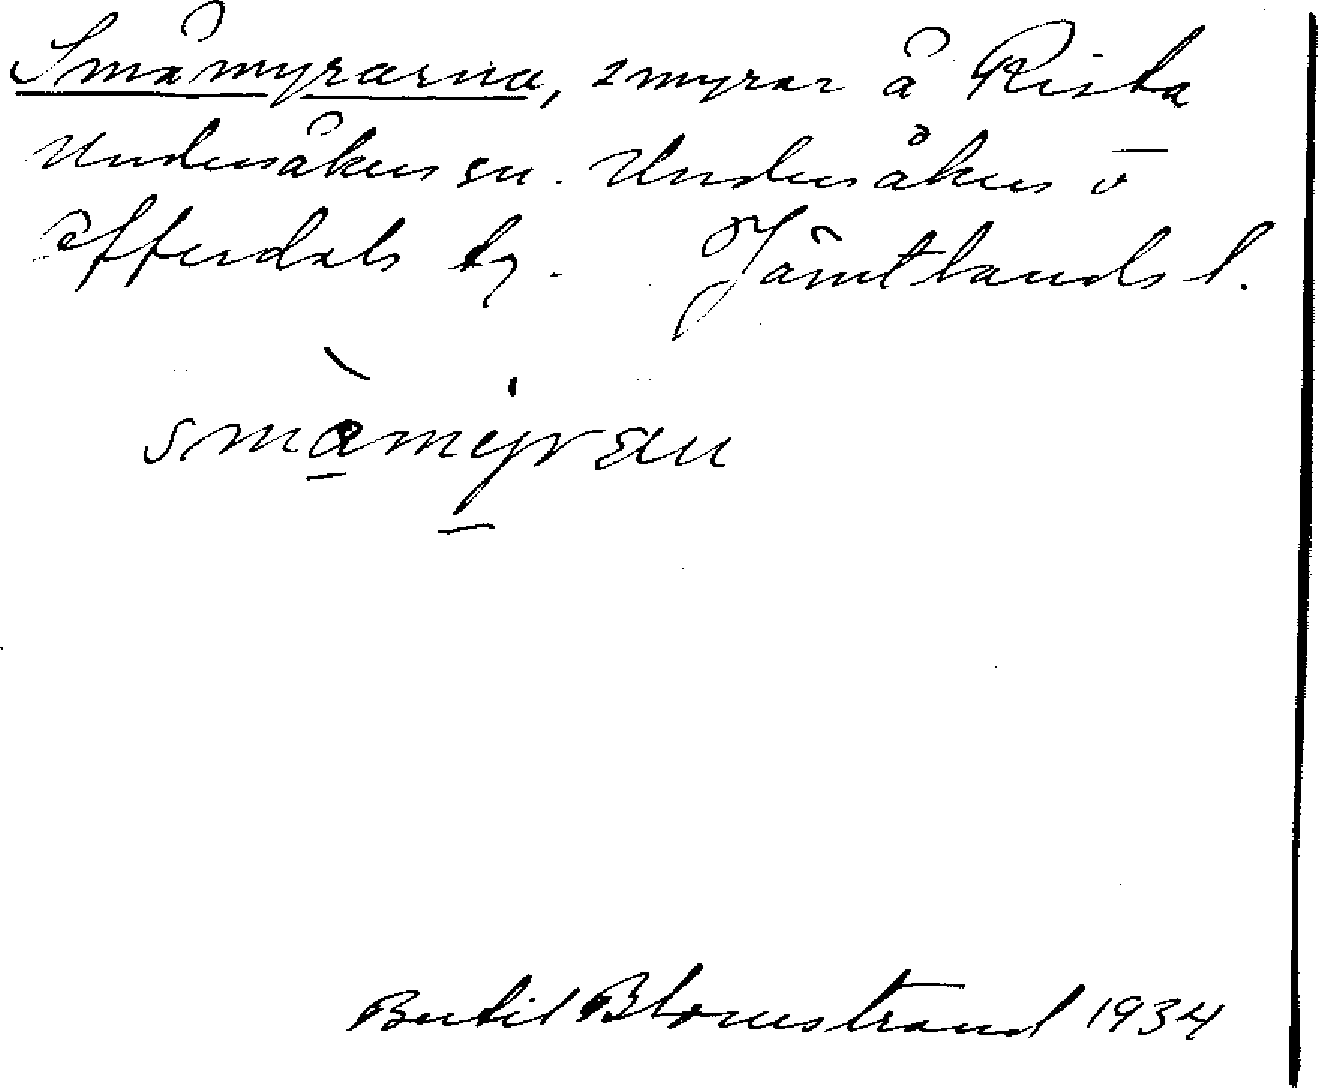 Småmyrarna, 2 myrar å Rista
Undersåkers sn. Undersåkers o
Offerdals tg. Jämtlands l.
småmyran
Bertil Blomstrand 1934